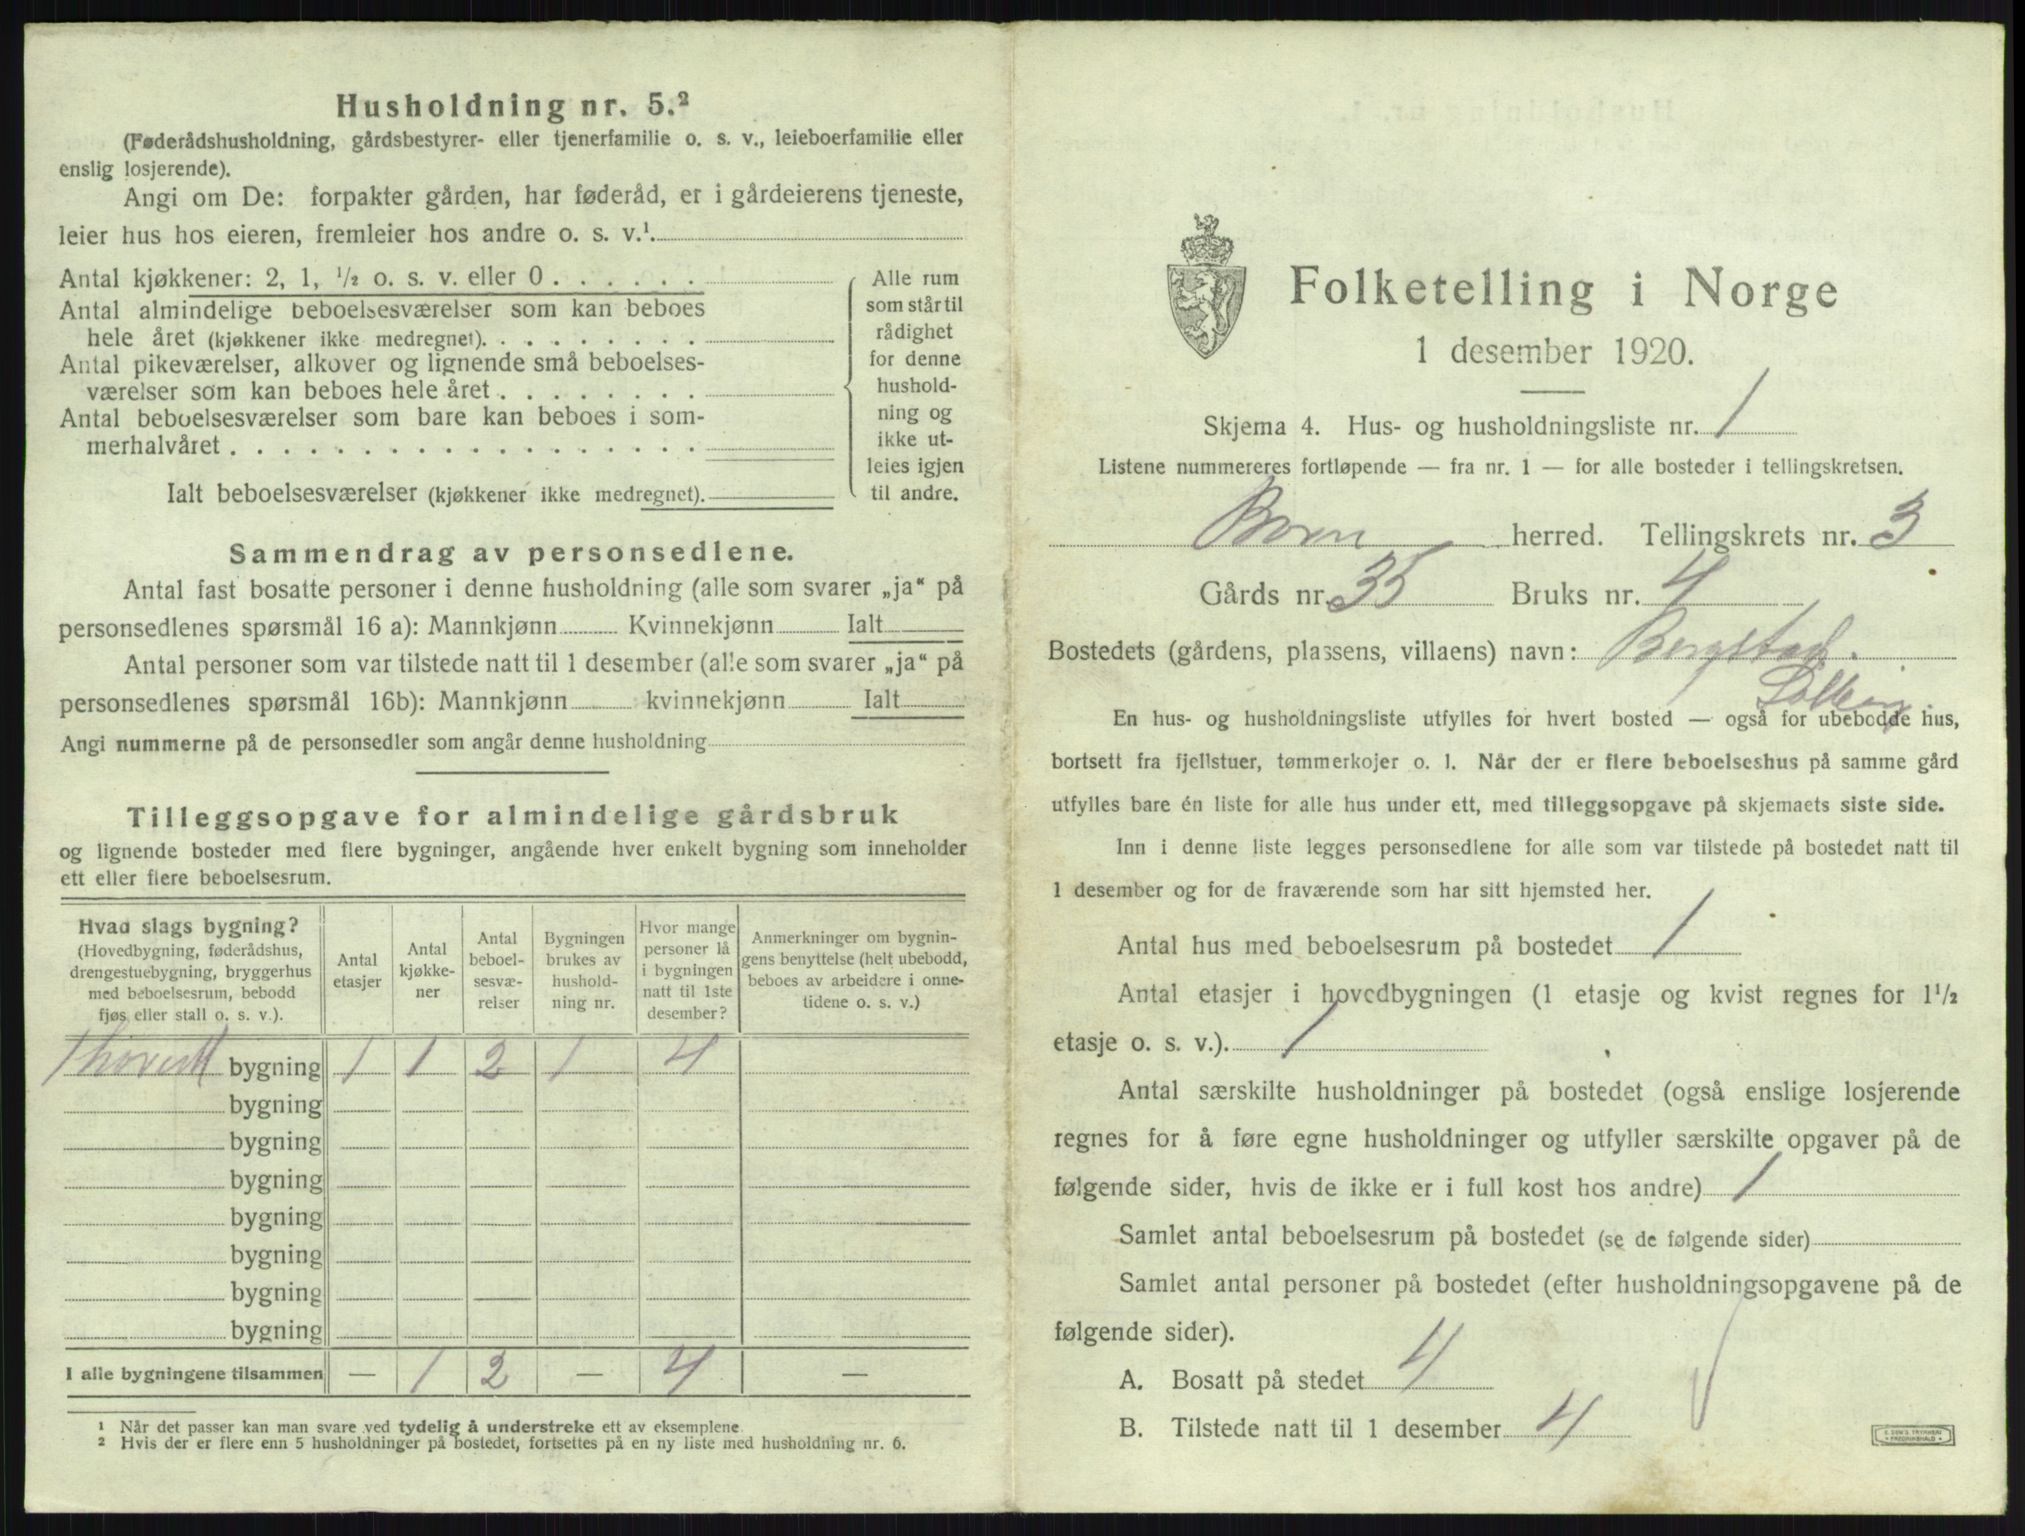 Husholdning nr. 5.²
(Føderådshusholdning, gårdsbestyrer- eller tjenerfamilie o. s. v., leieboerfamilie eller
enslig losjerende).
Angi om De: forpakter gården, har føderåd, er i gårdeierens tjeneste,
leier hus hos eieren, fremleier hos andre o. s. v.¹
Antal kjøkkener: 2, 1, ½ o. s. v. eller 0 . . . . . .
Antal almindelige beboelsesværelser som kan beboes
hele året (kjøkkener ikke medregnet). . . . . . . . .
Antal pikeværelser, alkover og lignende små beboelses-
værelser som kan beboes hele året . . . . . . . .
Antal beboelsesværelser som bare kan beboes i som-
merhalvåret . . . . . . . . . . . . . . . . . .
Ialt beboelsesværelser (kjøkkener ikke medregnet).
Alle rum
som står til
rådighet
for denne
hushold-
ning og
ikke ut-
leies igjen
til andre.
Sammendrag av personsedlene.
Antal fast bosatte personer i denne husholdning (alle som svarer „ja“ på
personsedlenes spørsmål 16 a): Mannkjønn Kvinnekjønn Ialt
Antal personer som var tilstede natt til 1 desember (alle som svarer „ja“ på
personsedlenes spørsmål 16b): Mannkjønn kvinnekjønn Ialt
Angi nummerne på de personsedler som angår denne husholdning
Tilleggsopgave for almindelige gårdsbruk
og lignende bosteder med flere bygninger, angående hver enkelt bygning som inneholder
ett eller flere beboelsesrum.
Hvad slags bygning?
(Hovedbygning, føderådshus,
drengestuebygning, bryggerhus
med beboelsesrum, bebodd
fjøs eller stall o. s. v.).
Antal
etasjer
Antal
kjøkke-
ner
Antal
beboel-
sesvæ-
relser
Bygningen
brukes av
hushold-
ning nr.
Hvor mange
personer lå
i bygningen
natt til 1ste
desember?
Anmerkninger om bygnin-
gens benyttelse (helt ubebodd,
beboes av arbeidere i onne-
tidene o. s. v.)
bygning 1 1 2 1 4
bygning
bygning
bygning
bygning
bygning
bygning
bygning
I alle bygningene tilsammen — 1 2 — 4 —
¹ Når det passer kan man svare ved tydelig å understreke ett av eksemplene.
² Hvis der er flere enn 5 husholdninger på bostedet, fortsettes på en ny liste med husholdning nr. 6.
Folketelling i Norge
1 desember 1920.
Skjema 4. Hus- og husholdningsliste nr. 1
Listene nummereres fortløpende — fra nr. 1 — for alle bosteder i tellingskretsen.
herred. Tellingskrets nr. 3
Gårds nr. 35 Bruks nr. 4
Bostedets (gårdens, plassens, villaens) navn: Bergstad.
Solberg
En hus- og husholdningsliste utfylles for hvert bosted — også for ubebodde hus,
bortsett fra fjellstuer, tømmerkojer o. l. Når der er flere beboelseshus på samme gård
utfylles bare én liste for alle hus under ett, med tilleggsopgave på skjemaets siste side.
Inn i denne liste legges personsedlene for alle som var tilstede på bostedet natt til
1 desember og for de fraværende som har sitt hjemsted her.
Antal hus med beboelsesrum på bostedet 1
Antal etasjer i hovedbygningen (1 etasje og kvist regnes for 1½
etasje o. s. v.). 1
Antal særskilte husholdninger på bostedet (også enslige losjerende
regnes for å føre egne husholdninger og utfyller særskilte opgaver på de
følgende sider, hvis de ikke er i full kost hos andre) 1
Samlet antal beboelsesrum på bostedet (se de følgende sider)
Samlet antal personer på bostedet (efter husholdningsopgavene på de
følgende sider).
A. Bosatt på stedet 4
B. Tilstede natt til 1 desember 4